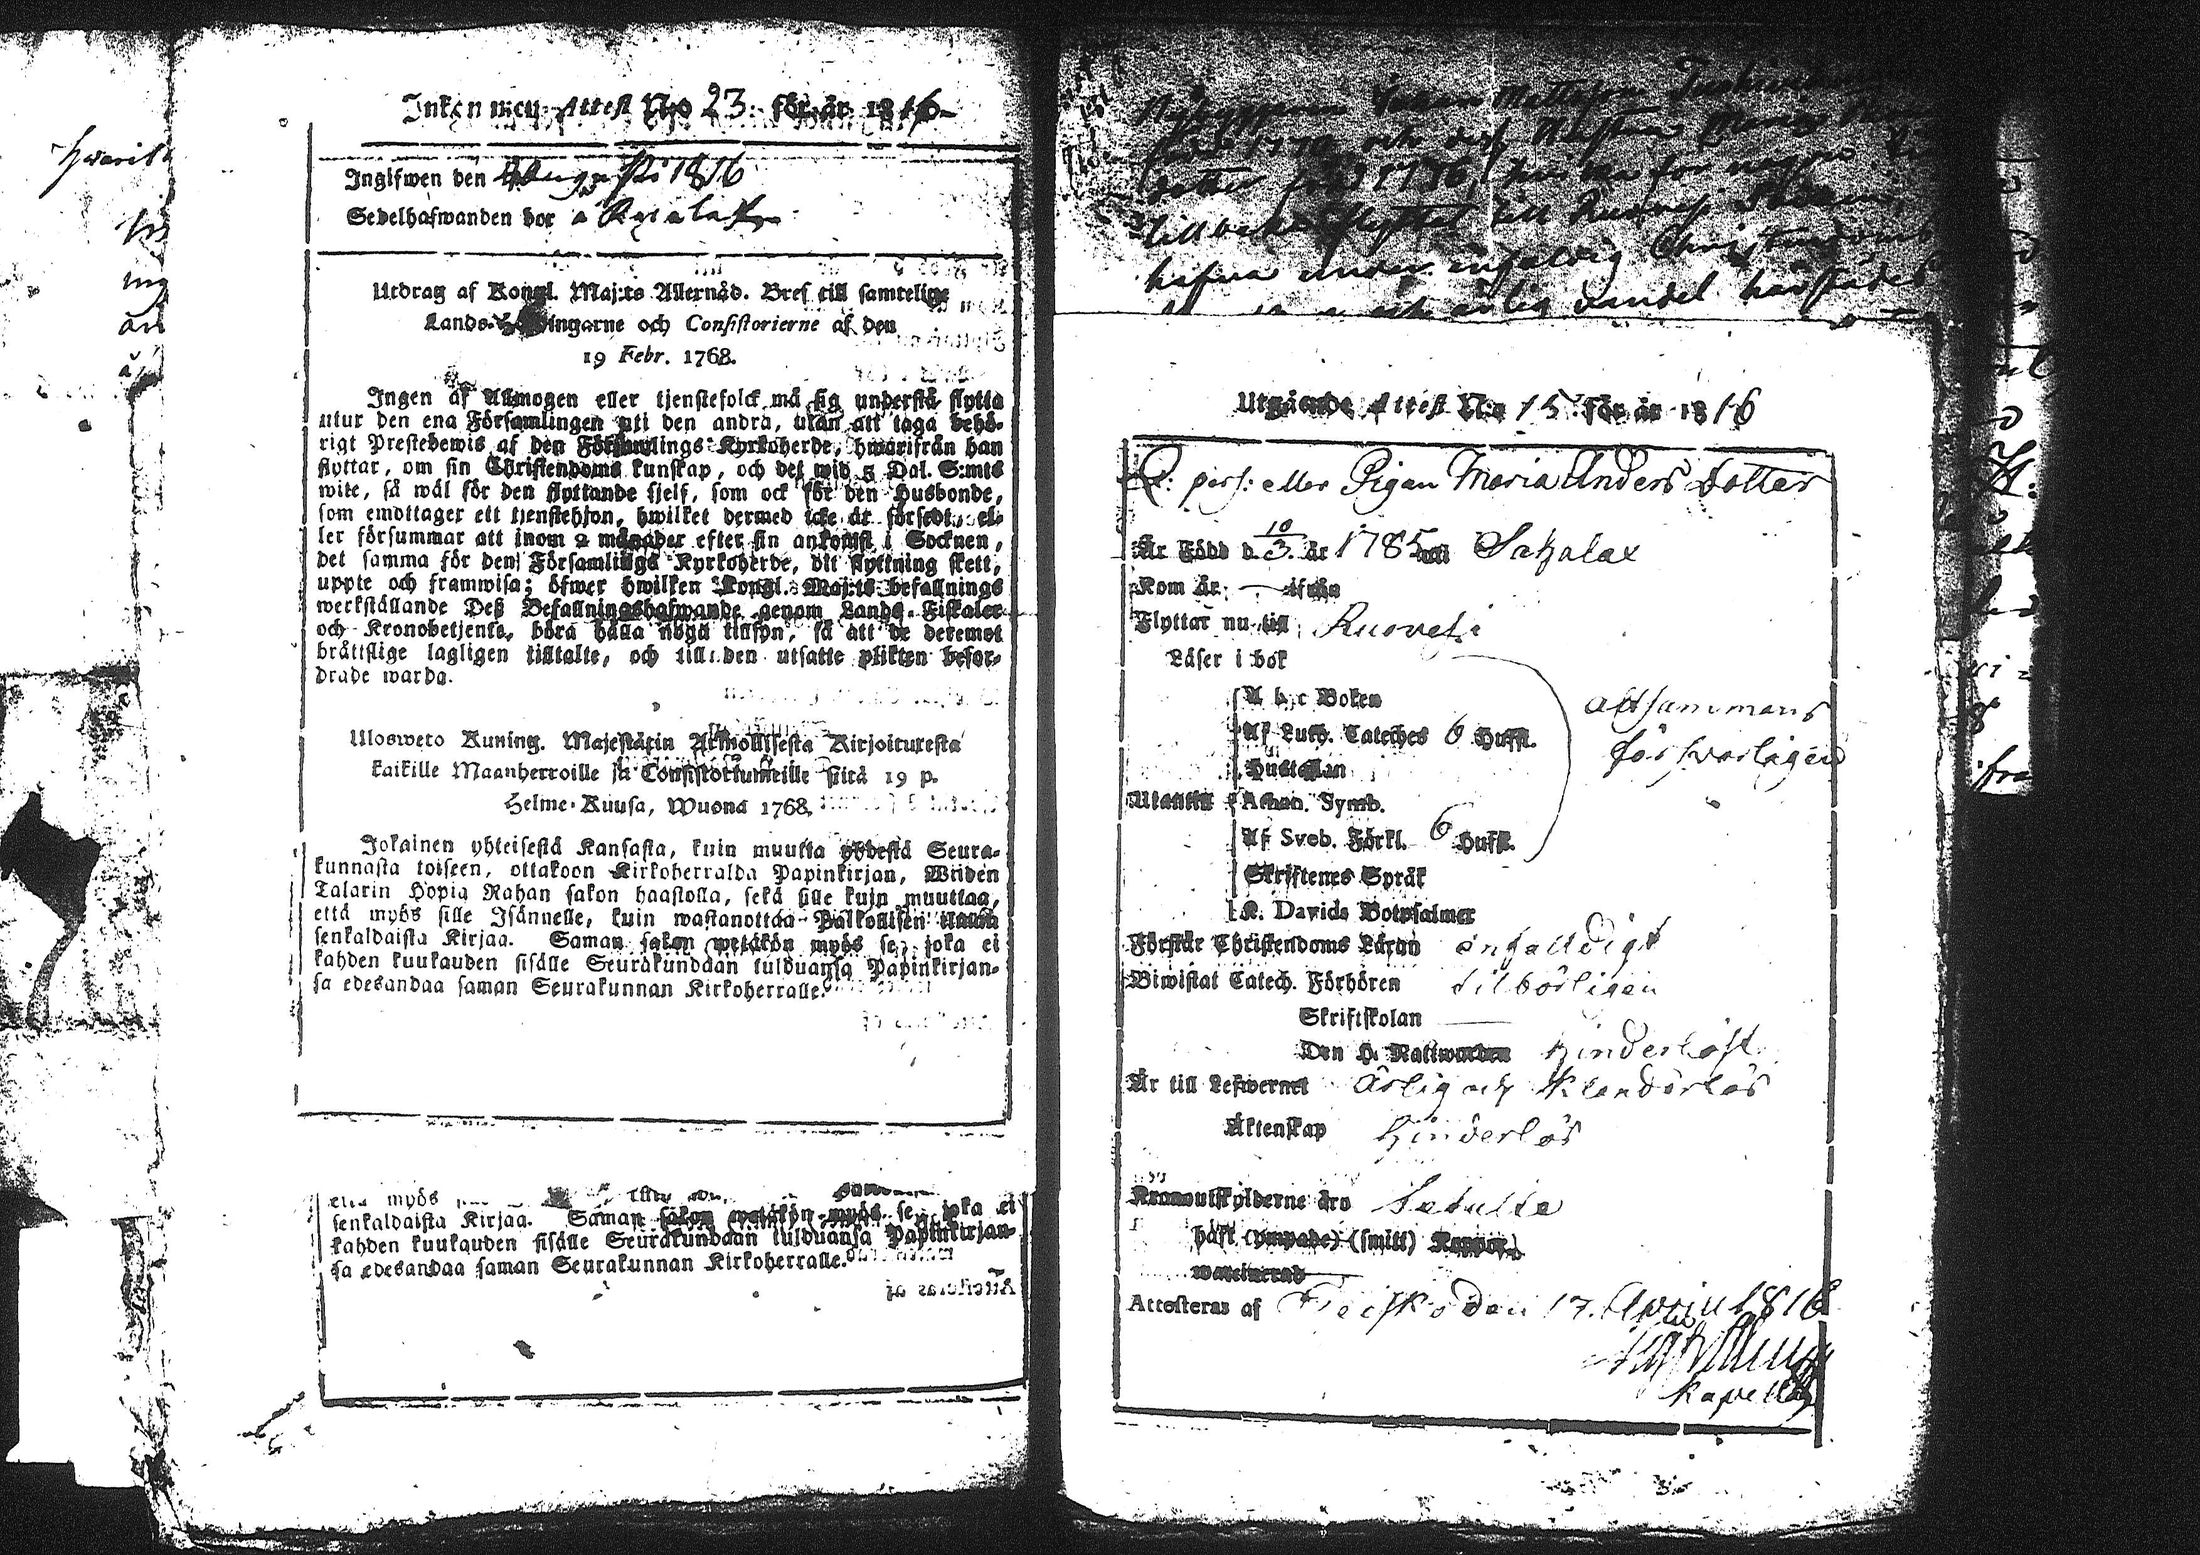 hwarif
Inkommen Attest N:o 23. för år 1816
Ingifwen den Augusti 1816
Sedelhafwanden bor å
Utdrag af Kongl. Maj:ts Allernåd. Bref till samtelige
Lands-Höfdingarne och Consistorierne af den
19 Febr. 1768.
Ingen af Allmogen eller tjenstefolck må sig understå flytta
utur den ena Församlingen uti den andra, utan att taga behö-
rigt Prestebewis af den Församlings Kyrkoherde, hwarifrån han
flyttar, om sin Christendoms kunskap, och det wid 5 Dal. S:mts
wite, så wäl för den flyttande sjelf, som ock för den Husbonde,
som emottager ett tjenstehjon, hwilket dermed icke är försedt, el-
ler försummar att inom 2 månader efter sin ankomst i Socknen,
det samma för dens Församlings Kyrkoherde, dit flyttning skett,
uppte och framwisa; öfwer hwilken Kongl. Maj:ts befallnings
werkställande Deß Befallningshafwande genom Lands-Fiskaler
och Kronobetjente, böra hålla noga tillsyn, så att de deremot
bråttslige lagligen tilltalte, och till den utsatte plikten befor-
drade warda.
Ulosweto Kuning. Majestätin Armollisesta Kirjoituresta
kaikille Maanherroille ja Consistoriumeille siitä 19 p.
Helme-Kuusa, Wuona 1768.
Jokainen yhteisestä Kansasta, kuin muutta yhdestä Seura-
kunnasta toiseen, ottakoon Kirkoherralda Papinkirjan, Wiiden
Talarin Hopia Rahan sakon haastolla, sekä sille kuin muuttaa,
että myös sille Isännelle, kuin wastanottaa Palkollisen ilman
senkaldaista Kirjaa. Saman sakon wetäkön myös se, joka ei
kahden kuukauden sisälle Seurakundaan tulduansa Papinkirjan-
sa edesandaa saman Seurakunnan Kirkoherralle.
että myös
senkaldaista Kirjaa. Saman sakon wetäkön myös se, joka ei
kahden kuukauden sisälle Seurakundaan tulduansa Papinkirjan-
sa edesandaa saman Seurakunnan Kirkoherralle.
Nybyggaren Johan Mattsson
född 1770 och dess Hustru Maria
dotter född 1776, hvilka för några
tillbaka flyttat till Ruovesi Socken,
hafva under enfaldig Christendoms
och ärlig vandel härstädes
Utgående Attest N:o 15 för år 1816
Q: pers: eller Pigan Maria Anders Dotter
Är Född d. 10/3. år 1785 uti Sakalax
Kom år — ifrån
Flyttar nu till Ruovesi
Läser i bok
A b c Boken
Af Luth. Cateches 6 Hufst.
Hustaflan
Utantill Athan. Symb.
Af Sveb. Förkl. 6 Hufst.
Skriftenes Språk
K. Davids Botpsalmer
altsammans
försvarligen
Förstår Christendoms Läran enfalldigt
Biwistat Catech. Förhören tilbörligen
Skriftskolan —
Den H. Nattwarden hinderlöst
Är till Lefwernet Ärlig och Klanderlös
Äktenskap hinderlös
Kronoutskylderne äro betalte
haft (ympade) (smitt) Koppor
waccinerad
Attesteras af den 17. April 1816
Kapellan